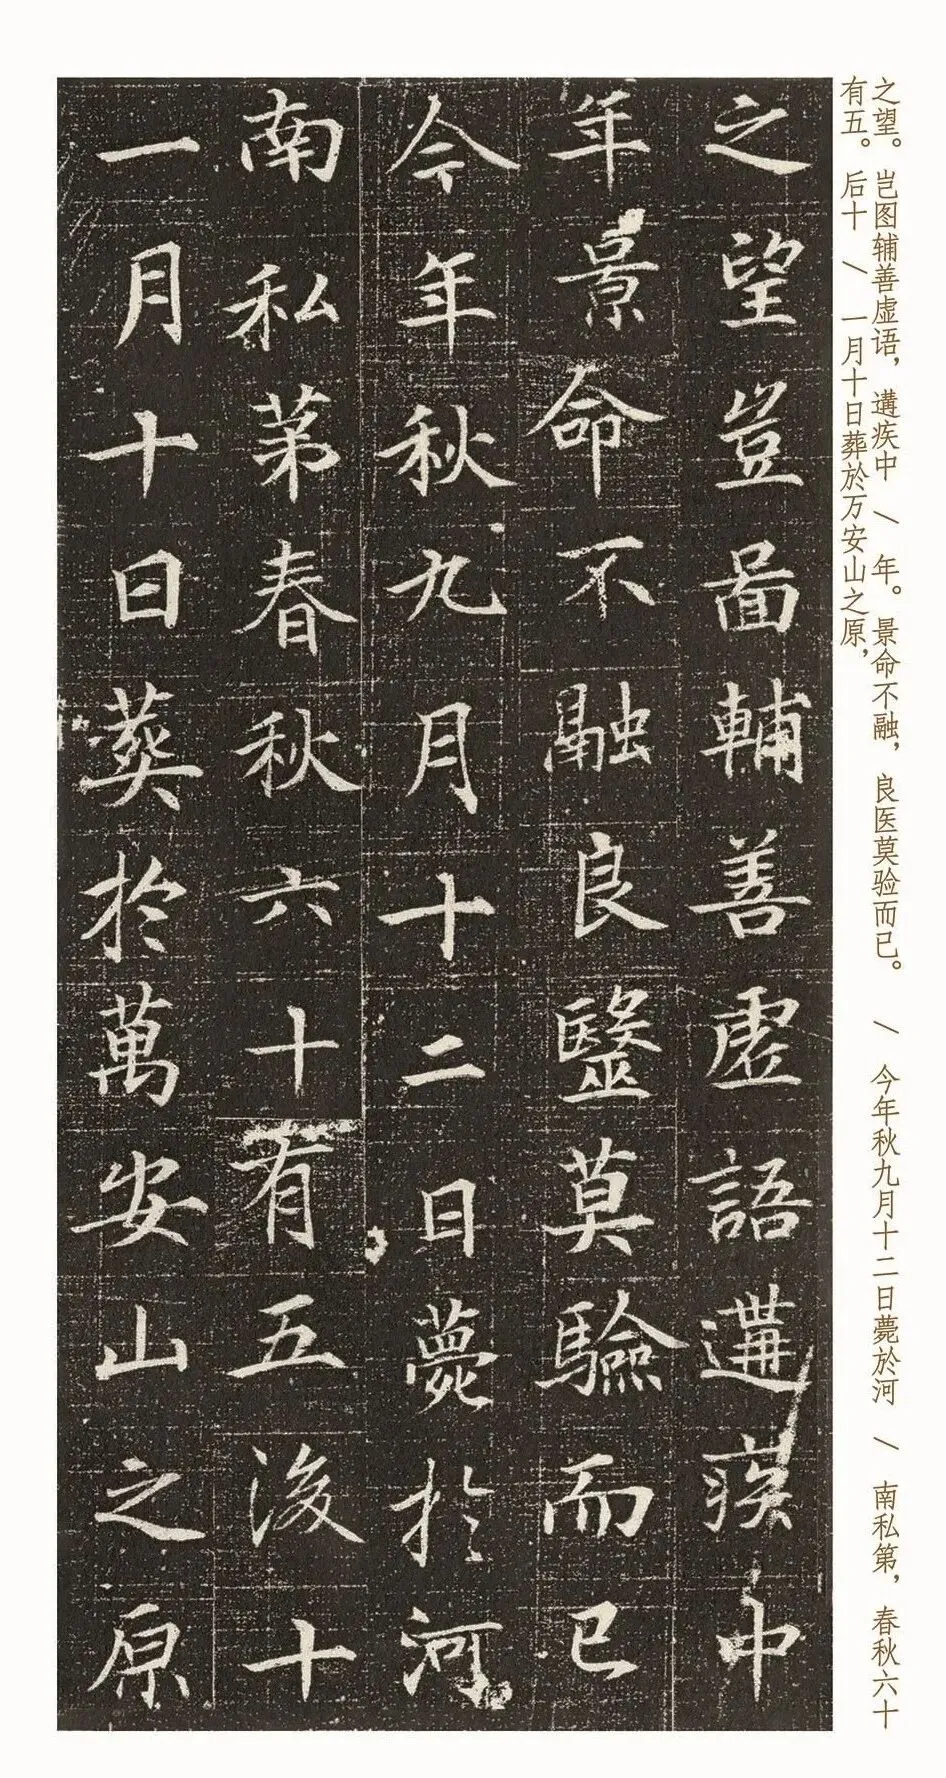 之望。岂图辅善虚语，遘疾中 / 年。景命不融，良医莫验而已。 / 今年秋九月十二日薨於河 / 南私第，春秋六十
有五。后十 / 一月十日葬於万安山之原，
之望豈啚輔善虛語遘疾中
年景命不融良毉莫驗而已
今年秋九月十二日薨扵河
南私苐春秋六十有五後十
一月十日葬扵萬安山之原